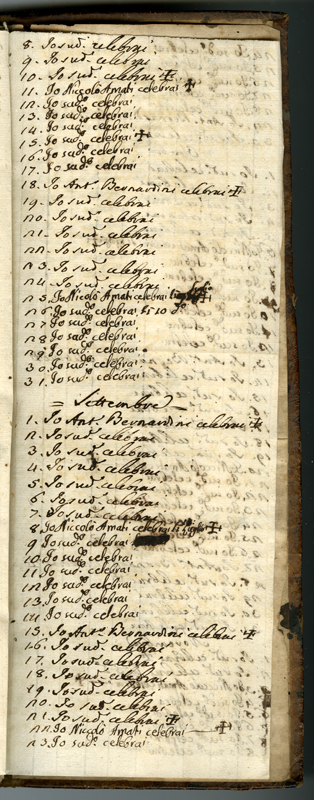 8. Io sud.º celebrai
9. Io sud.º celebrai
10. Io sud.º celebrai ✠
11. Io Niccolò Amati celebrai ✠
12. Io sud.º celebrai
13. Io sud.º celebrai
14. Io sud.º celebrai
15. Io sud.º celebrai ✠
16. Io sud.º celebrai
17. Io sud.º celebrai
18. Io Ant.º Bernardini celebrai ✠
19. Io sud.º celebrai
20. Io sud.º celebrai
21. Io sud.º celebrai
22. Io sud.º celebrai
23. Io sud.º celebrai
24. Io sud.º celebrai
25. Io Niccolò Amati celebrai ✠
26. Io sud.º celebrai
27. Io sud.º celebrai
28. Io sud.º celebrai
29. Io sud.º celebrai
30. Io sud.º celebrai
31. Io sud.º celebrai
= Settembre
1. Io Ant.º Bernardini celebrai ✠
2. Io sud.º celebrai
3. Io sud.º celebrai
4. Io sud.º celebrai
5. Io sud.º celebrai
6. Io sud.º celebrai
7. Io sud.º celebrai
8. Io Niccolò Amati celebrai ✠
9. Io sud.º celebrai
10. Io sud.º celebrai
11. Io sud.º celebrai
12. Io sud.º celebrai
13. Io sud.º celebrai
14. Io sud.º celebrai
15. Io Ant.º Bernardini celebrai ✠
16. Io sud.º celebrai
17. Io sud.º celebrai
18. Io sud.º celebrai
19. Io sud.º celebrai
20. Io sud.º celebrai
21. Io sud.º celebrai ✠
22. Io Niccolò Amati celebrai ✠
23. Io sud.º celebrai